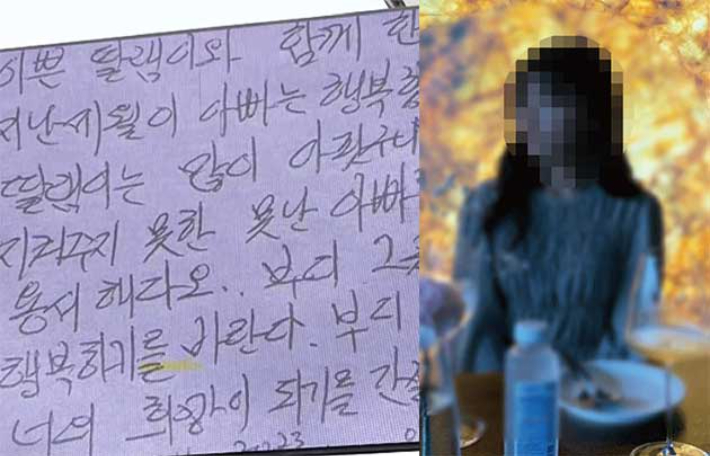 이쁜 딸램이와 함께 한
지난세월이 아빠는 행복
딸램이는 많이 아팟구나
지켜주지 못한 못난 아빠
용서 해다오.. 부디 그
행복하기를 바란다. 부디
너의 희망이 되기를 간
2023